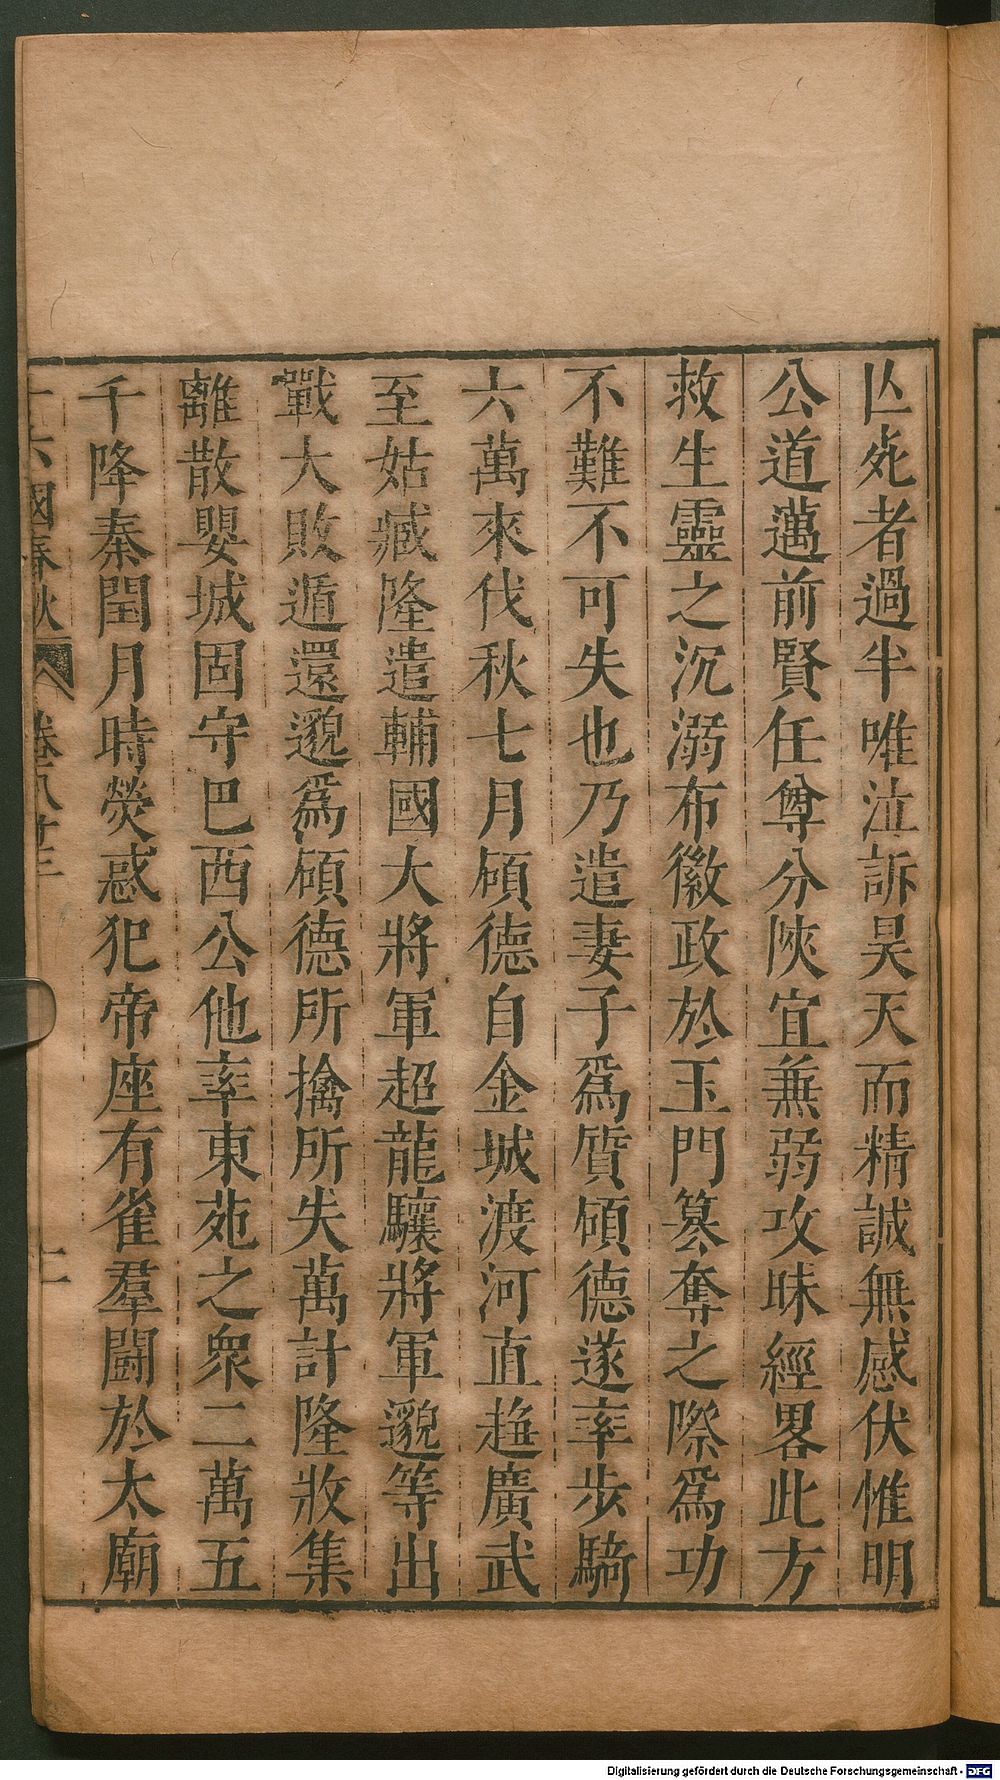 亾死者過半唯泣訴昊天而精誠無感伏惟明
公道邁前賢任尊分陝宜兼弱攻昧經畧此方
救生靈之沉溺布徽政於玉門簒奪之際爲功
不難不可失也乃遣妻子爲質碩德遂率步騎
六萬來伐秋七月碩德自金城渡河直趨廣武
至姑臧隆遣輔國大將軍超龍驤將軍邈等出
戰大敗遁還邈爲碩德所擒所失萬計隆收集
離散嬰城固守巴西公他率東苑之衆二萬五
千降秦閏月時熒惑犯帝座有雀羣鬪於太廟
十六國春秋 卷八十三 十一
Digitalisierung gefördert durch die Deutsche Forschungsgemeinschaft - DFG